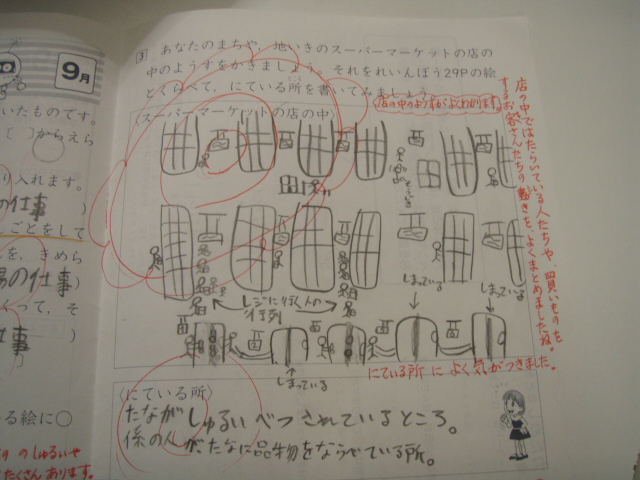 9月
いたものです。
[ ]からえら
り入れます。
の仕事 )
ごとをして
を、きめら
場の仕事 )
って、そ
仕事 )
る絵に○
のしゅるいや
たくさんあります。
3 あなたのまちや、地いきのスーパーマーケットの店の
中のようすをかきましょう。それをれいんぼう29Pの絵
とくらべて、にている所を書いてみましょう。
店の中のようすがよくわかります。
〈スーパーマーケットの店の中〉
しまっている
しまっている
レジに行く人の
行列
しまっている
店の中ではたらいている人たちや、買いものを
するお客さんたちの動きを、よくまとめましたね。
にている所によく気がつきました。
〈にている所〉
たながしゅるいべつされているところ。
係の人が、たなに品物をならべている所。